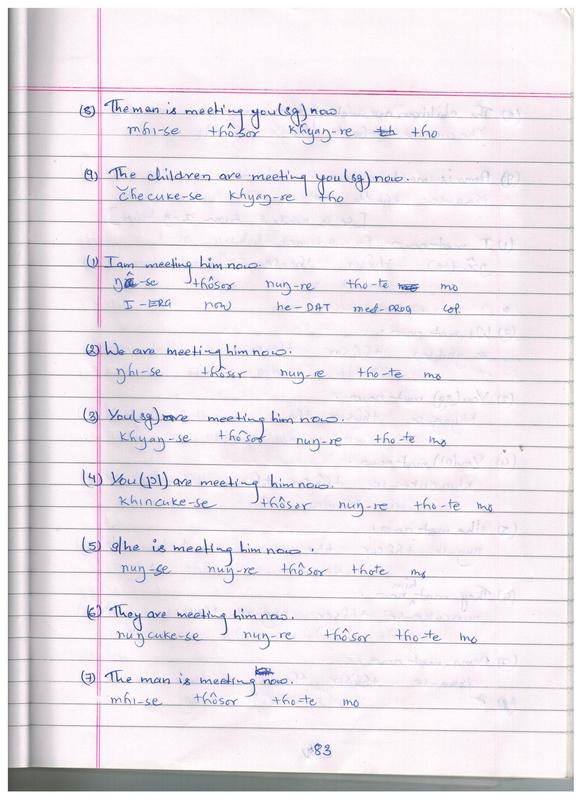 (8) The man is meeting you(sg) now
mhi-se thôsor khyaŋ-re tho
(9) The children are meeting you(sg) now.
čhecuke-se khyaŋ-re tho
(1) I am meeting him now.
ŋa-se thôsor nuŋ-re tho-te mo
I-ERG now he-DAT meet-PROG COP.
(2) We are meeting him now.
ŋhi-se thôsor nuŋ-re tho-te mo
(3) You(sg) are meeting him now.
khyaŋ-se thôsor nuŋ-re tho-te mo
(4) You(pl) are meeting him now.
khincuke-se thôsor nuŋ-re tho-te mo
(5) s/he is meeting him now.
nuŋ-se nuŋ-re thôsor thote mo
(6) They are meeting him now.
nuŋcuke-se nuŋ-re thôsor tho-te mo
(7) The man is meeting now.
mhi-se thôsor tho-te mo
83